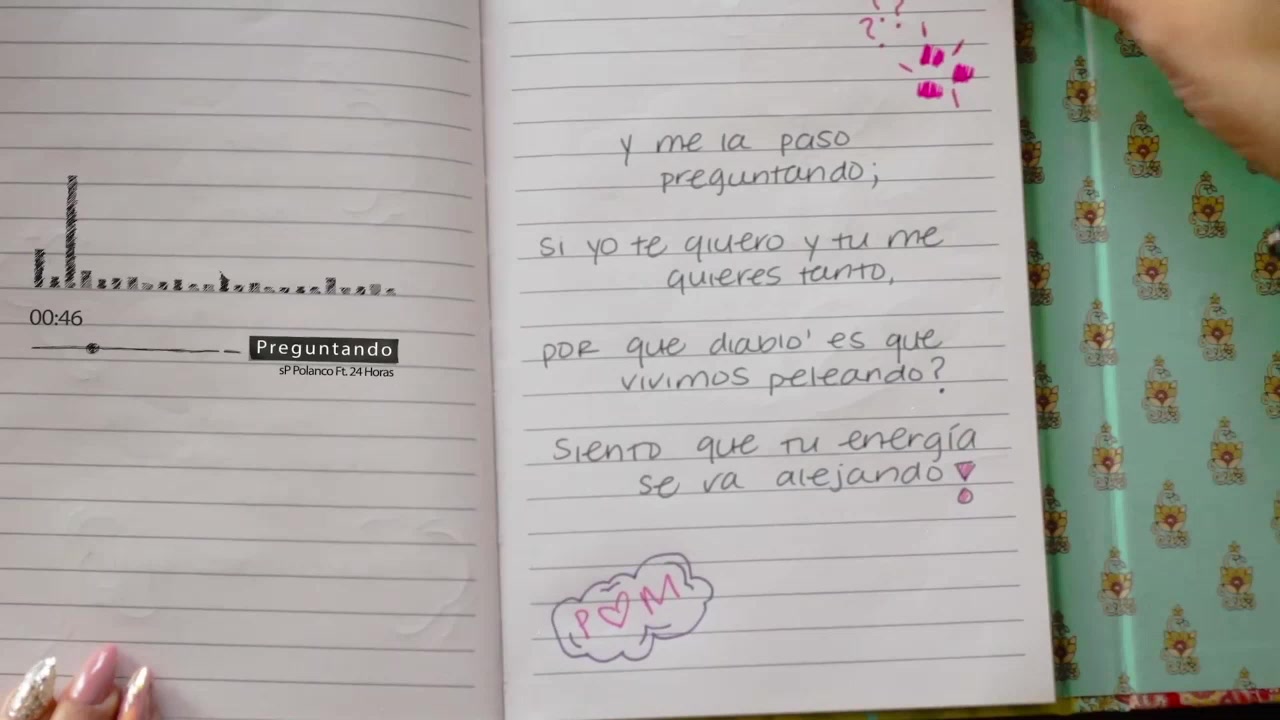 00:46
Preguntando
sP Polanco Ft. 24 Horas
? ?
?
y me la paso
preguntando;
si yo te quiero y tu me
quieres tanto,
por que diablo' es que
vivimos peleando?
siento que tu energía
se va alejando!
P ♡ M